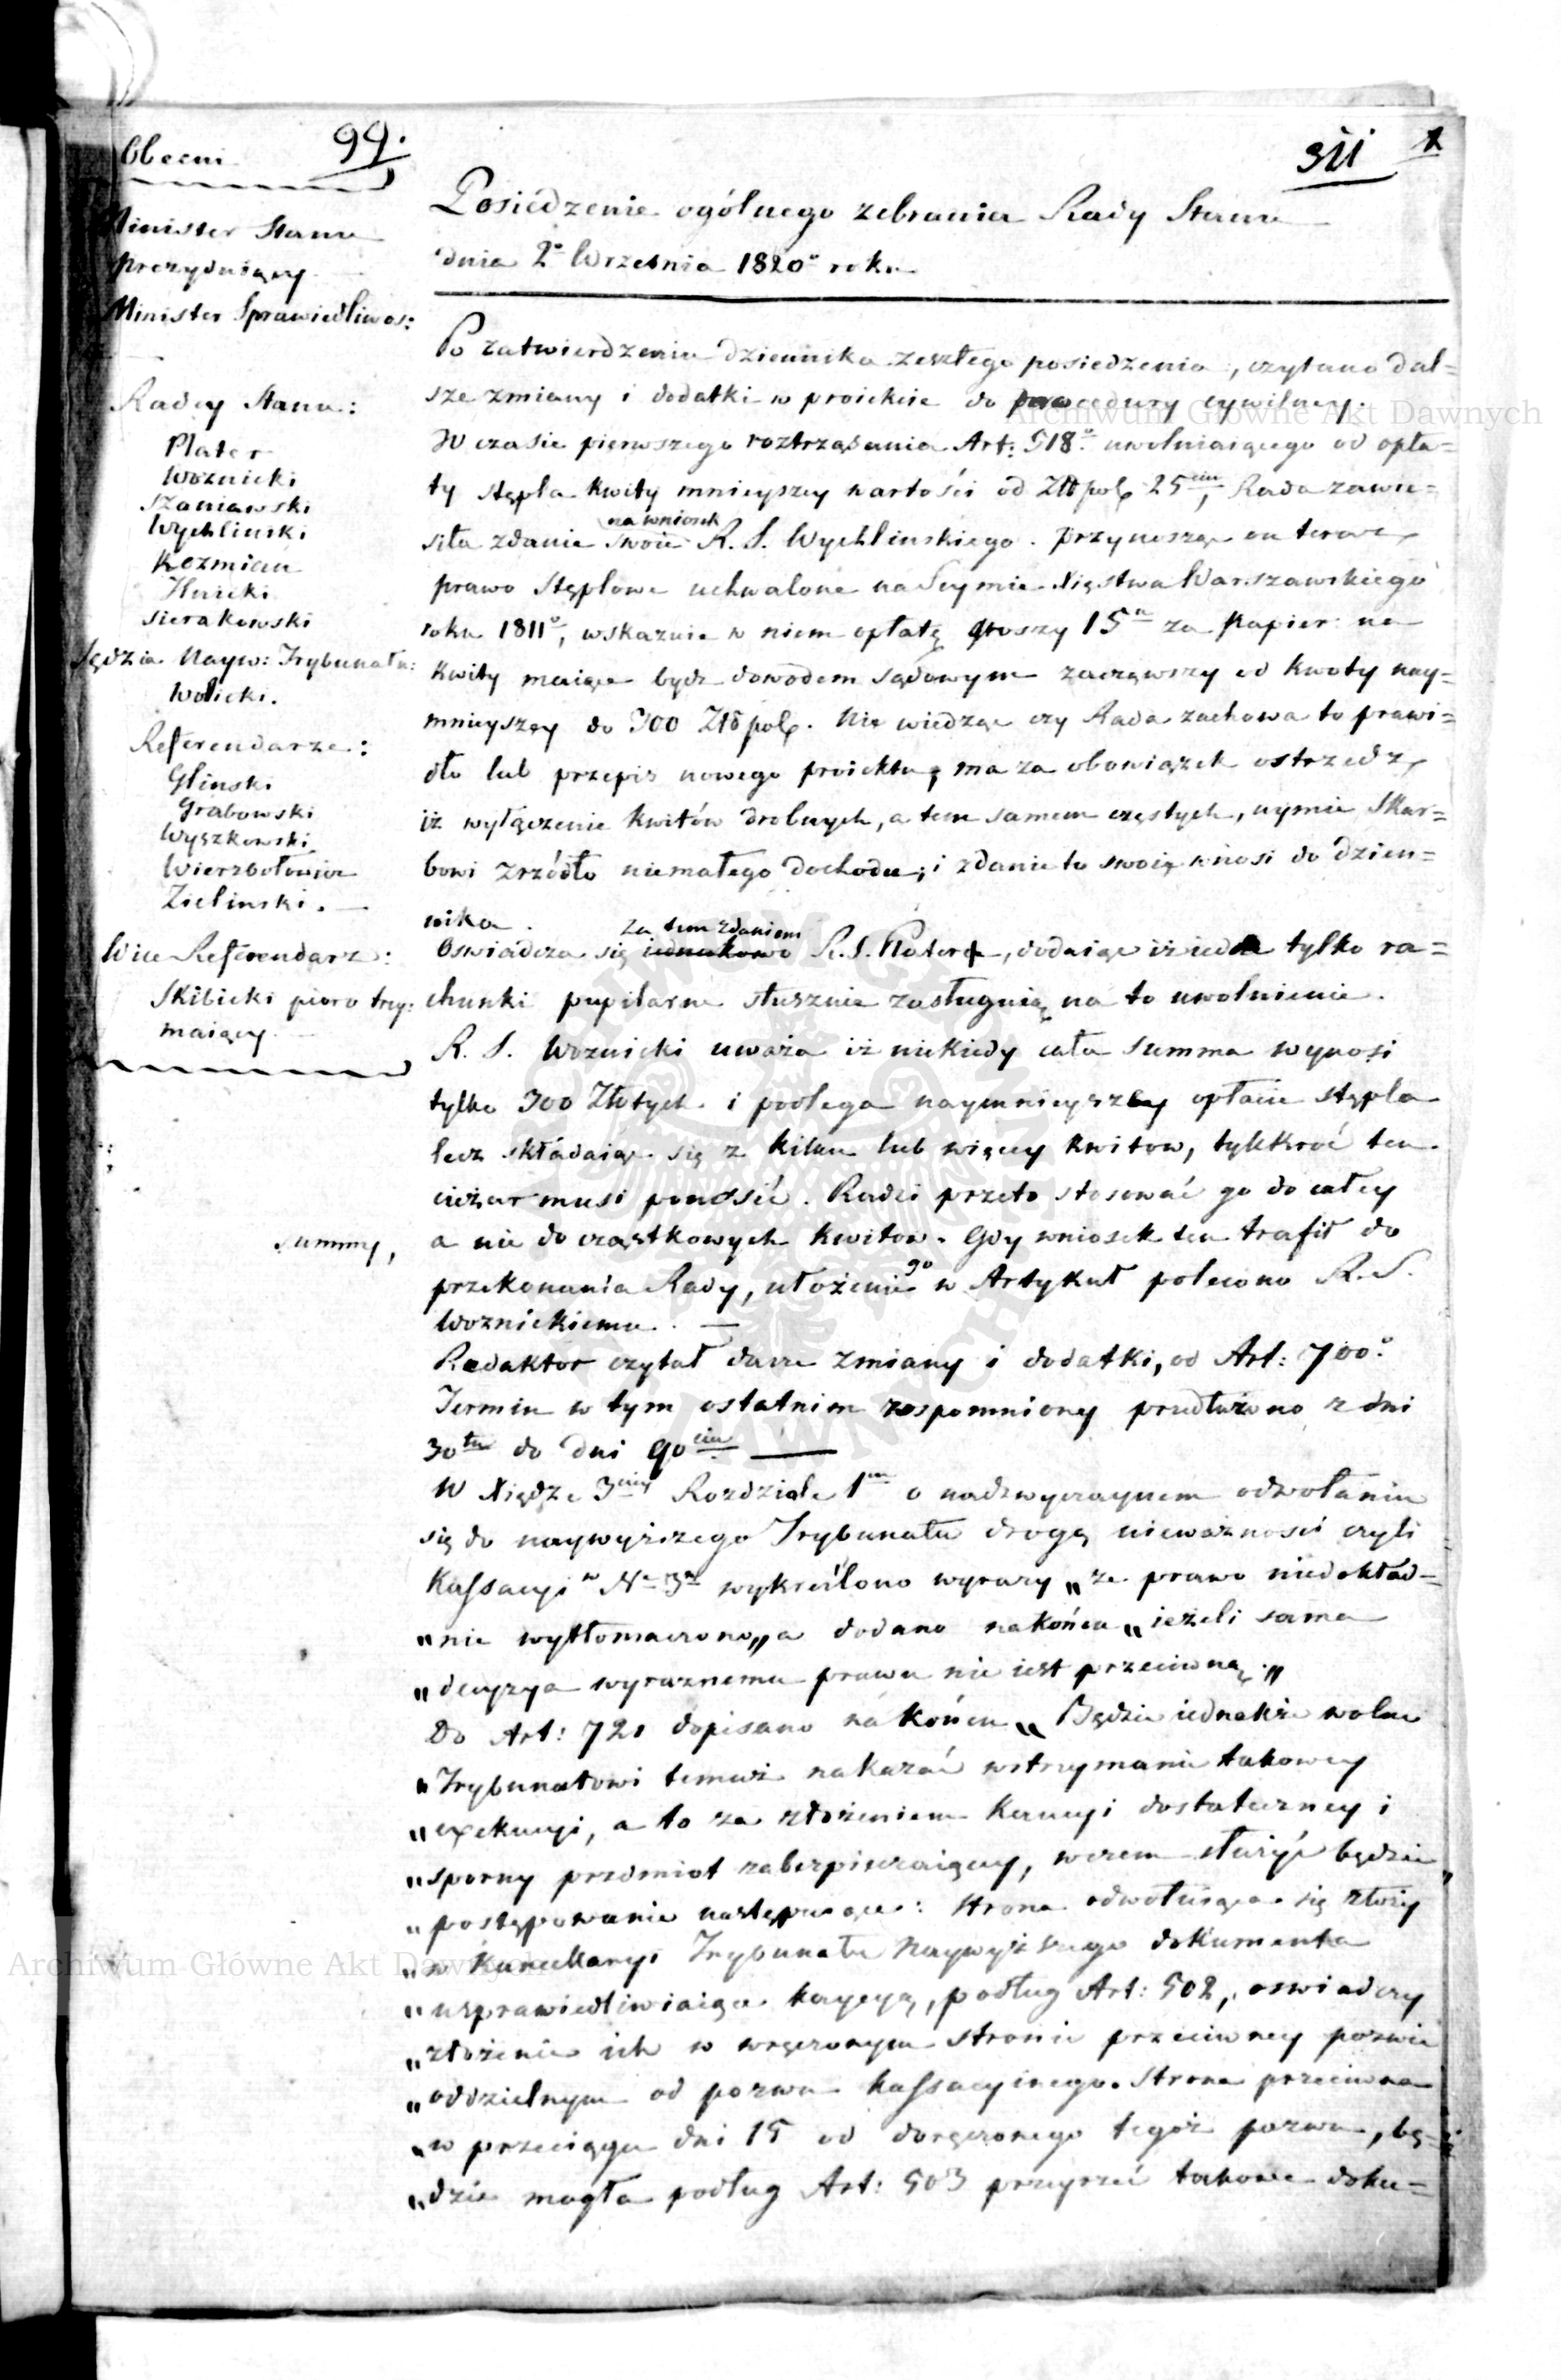 Obecni
99.
311
1
Minister Stanu
Prezyduiący
Minister Sprawiedliwoś:
Radcy Stanu:
Plater
Woznicki
Szaniawski
Wychlinski
Kozmian
Hnicki
Sierakowski
Sędzia Nayw: Trybunału:
Wolicki.
Referendarze:
Glinski
Grabowski
Wyszkowski
Wierzbołowicz
Zielinski.
Wice Referendarz:
Skibicki pióro trzy:
maiący
Posiedzenie ogólnego zebrania Rady Stanu
dnia 2º Września 1820º roku
Po zatwierdzeniu dziennika zeszłego posiedzenia, czytano dal=
sze zmiany i dodatki w proiekcie do procedury cywilney.
W czasie pierwszego roztrząsania Art: 518º uwolniaiącego od opła=
ty stępla kwity mnieyszey wartości od Złł pol. 25ciu, Rada zawie=
siła zdanie swoie na wniosek R. S. Wychlinskiego. Przynosząc on teraz
prawo Stęplowe uchwalone na Seymie Xięstwa Warszawskiego
roku 1811º, wskazuie w niem opłatę groszy 15u za papier na
kwity maiące bydz dowodem sądowym zacząwszy od kwoty nay=
mnieyszey do 300 Złł pol. Nie wiedząc czy Rada zachowa to prawi=
dło lub przepis nowego proiektu, ma za obowiązek ostrzedz,
iż wyłączenie kwitów drobnych, a tem samem częstych, uymie Skar=
bowi zrzódło niemałego dochodu; i zdanie to swoię wnosi do dzien=
nika.
Oswiadcza się za tem zdaniem R. S. Plater, dodaiąc iż iedne tylko ra=
chunki pupilarne słusznie zasługuią na to uwolnienie.
R. S. Woznicki uważa iż niekiedy cała summa wynosi
tylko 300 Złotych i podlega naymnieyszey opłacie stępla
lecz składaiąc się z kilku lub więcey kwitow, tylekroć ten
ciężar musi ponosić. Radzi przeto stosować go do całey
summy, a nie do cząstkowych kwitow. Gdy wniosek ten trafił do
przekonania Rady, ułożenie go w Artykuł polecono R. S.
Woznickiemu.
Redaktor czytał dalsze zmiany i dodatki, od Art: 700º
Termin w tym ostatnim wspomniony przedłużono z dni
30tu do dni 90ciu
W Xiędze 3ciey Rozdziale 1m o nadzwyczaynem odwołaniu
się do naywyższego Trybunału drogą nieważności czyli
Kassacyi w Nrze 3m wykreślono wyrazy „że prawo niedokład=
„nie wytłomaczono„ a dodano na końcu „ieżeli sama
„decyzya wyraznemu prawu nie iest przeciwną.„
Do Art: 720 dopisano na końcu „Będzie iednakże wolno
„Trybunałowi temuż nakazać wstrzymanie takowey
„exekucyi, a to za złożeniem kaucyi dostateczney i
„sporny przedmiot zabezpieczaiącey, w czem służyć będzie
„postępowanie następuiące: Strona odwołuiąca się złoży
„w Kancellaryi Trybunału Naywyższego dokumenta
„usprawiedliwiaiące kaucyą, podług Art: 502, oswiadczy
„złożenie ich w wręczonym stronie przeciwney pozwie
„oddzielnym od pozwu kassacyinego. Strona przeciwna
„w przeciągu dni 15 od doręczonego tegoż pozwu, bę=
„dzie mogła podług Art: 503 przeyrzeć takowe doku=
Archiwum Główne Akt Dawnych
Archiwum Główne Akt Dawnych